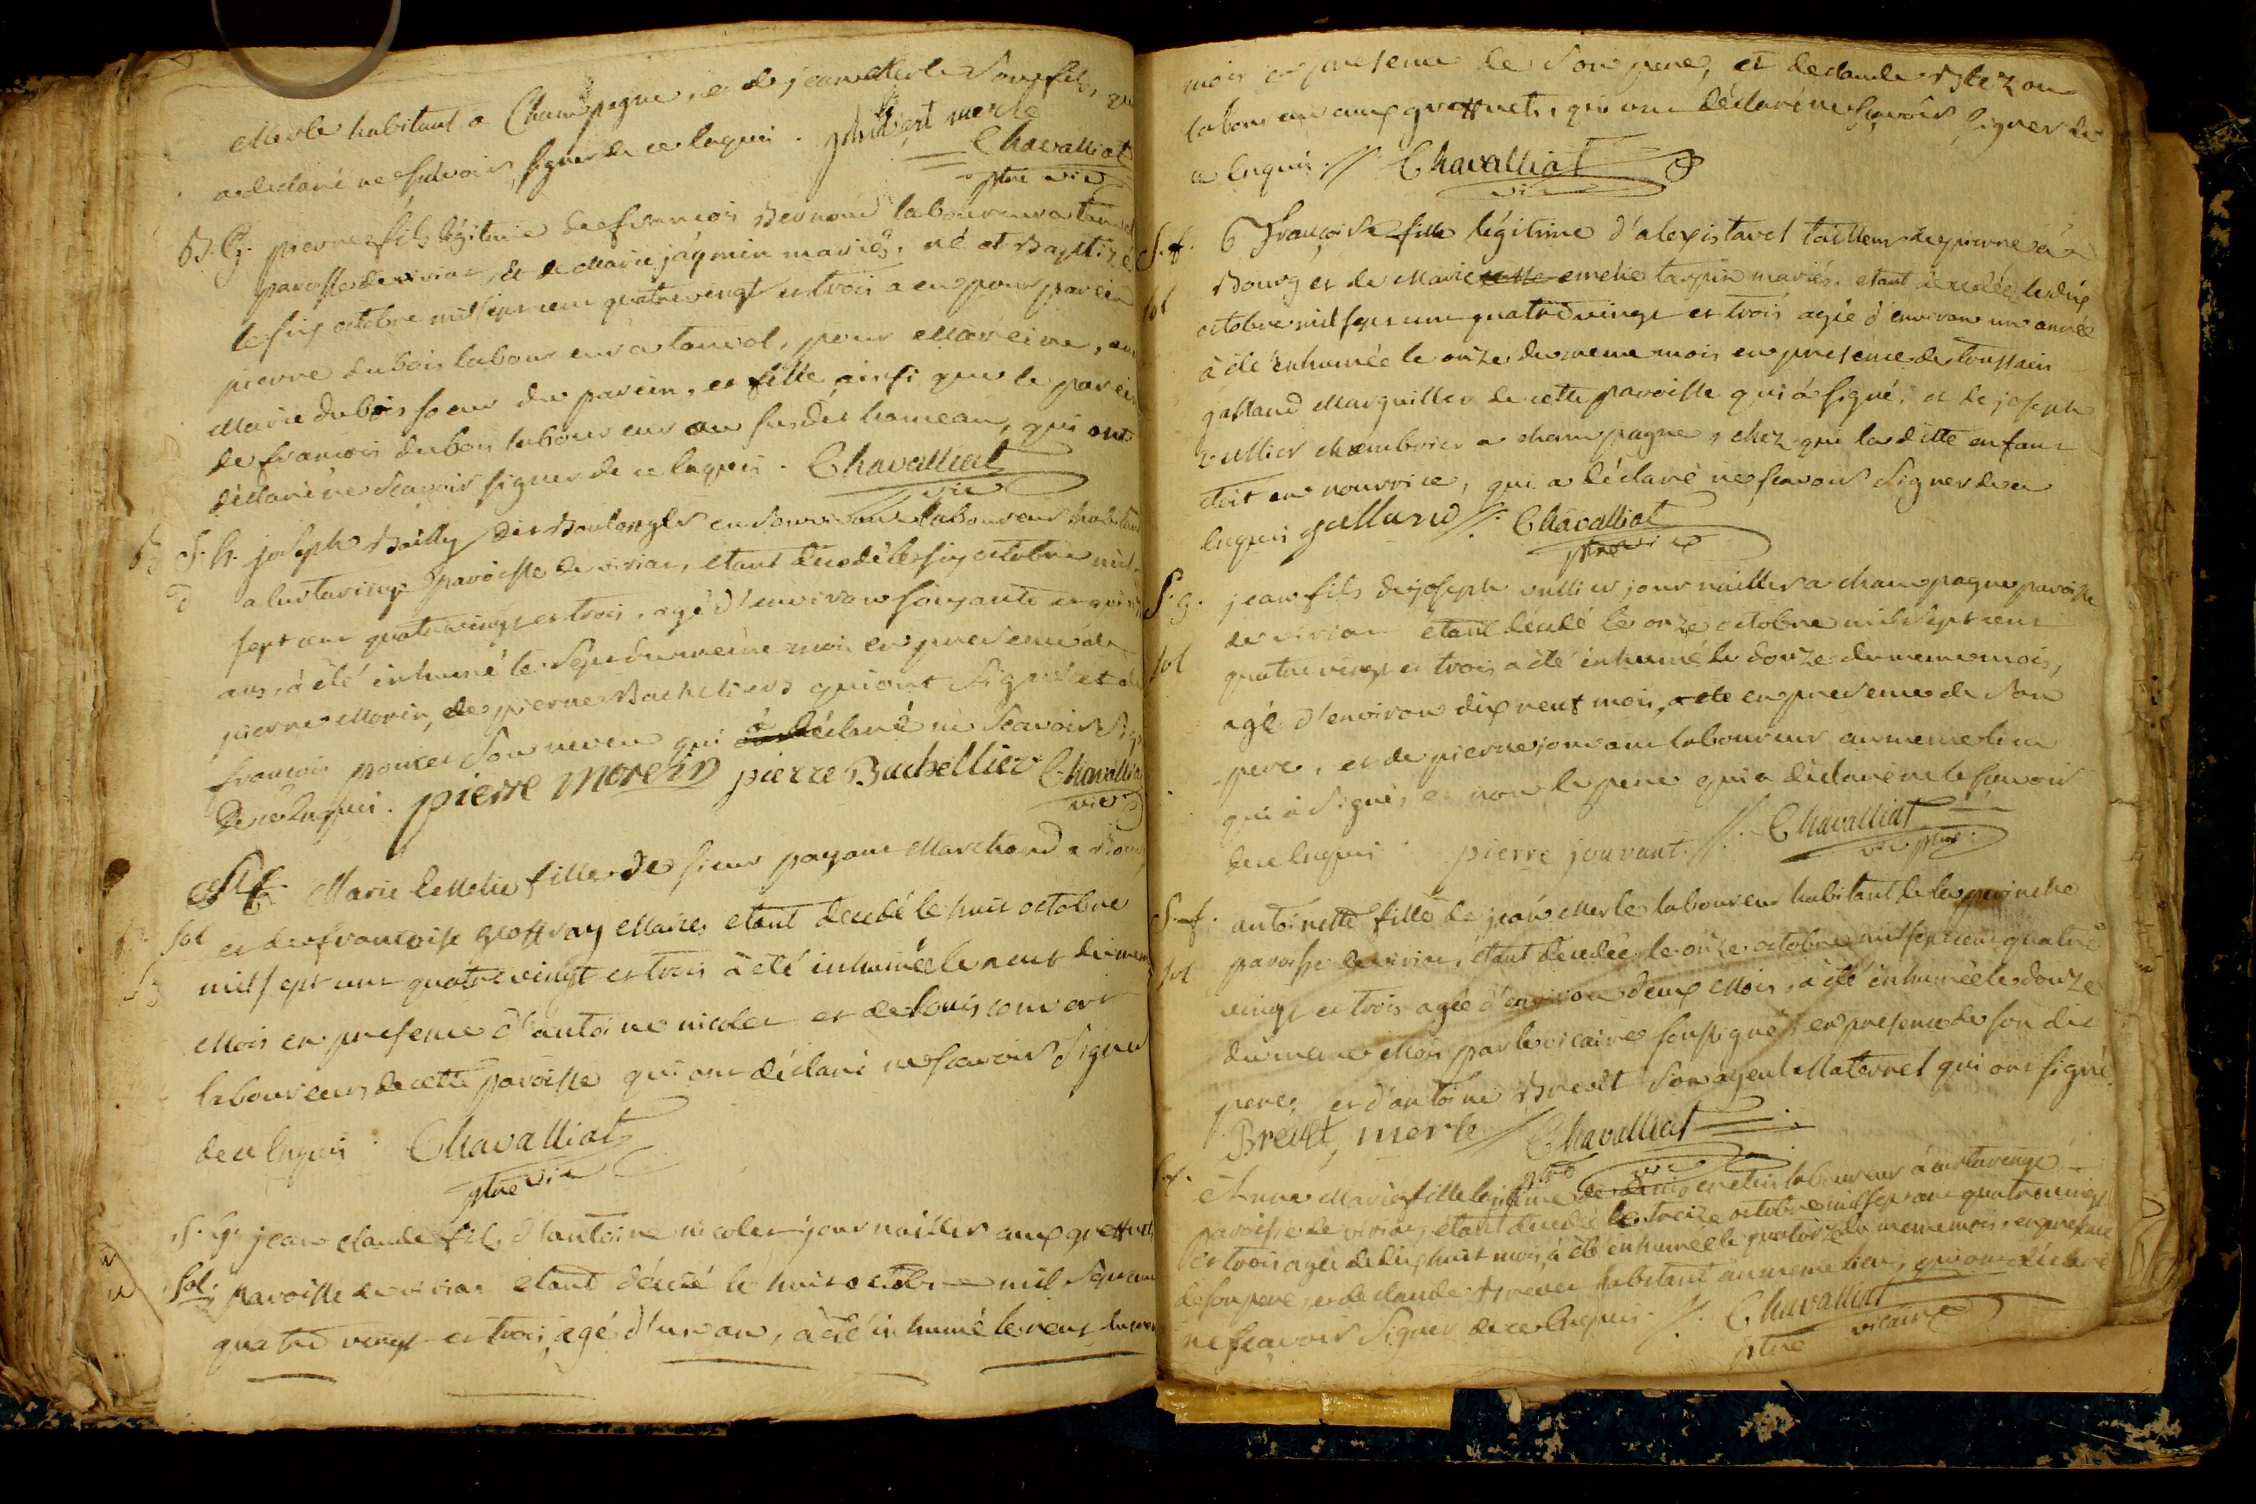 Merle habitant a Champagne, et de jean Merle son fils, qui
a declaré ne sçavoir signer de ce enquis. philibert merle
Chavalliat
ptre vic
B. G. pierre fils légitime de françois Bernoud laboureur a tanvol
paroisse de viriat, et de Marie jâgmin mariés, né et Baptizé
le six octobre mil sept cent quatre vingt et trois a eu pour parein
pierre dubois laboureur a tanvol, pour Mareine,
Marie dubois soeur du parein, et fille ainsi que le parein
de françois dubois laboureur au susdit hameau, qui ont
déclaré ne sçavoir signer de ce enquis. Chavalliat
vic
S. h. joseph Bailly dit Boulonges en son vivant laboureur habitant
a curtaringe paroisse de viriat, etant décédé le six octobre mil
sept cent quatre vingt et trois, agé d'environ soixante et quinze
ans, à été inhumé le sept du même mois en presence de
pierre Morin, de pierre Bachelier qui ont signé et de
françois poncet son neveu qui à déclaré ne sçavoir sig
de ce enquis. pierre morein pierre Buchellier Chavalliat
vic
S. f. Marie Emelie fille de sieur payant Marchand a Bourg
Sol et de françoise geoffray Mariés etant decedé le huit octobre
mil sept cent quatre vingt et trois à été inhumée le neuf du meme
Mois en presence d'antoine nicolet et de louis convert
laboureurs de cette paroisse qui ont déclaré ne sçavoir signer
de ce enquis. Chavalliat
ptre vic
S. g. jean claude fils d'antoine nicolet journaillier aux greffets
Sol. paroisse de viriat etant décédé le huit octobre mil sept cent
quatre vingt et trois, agé d'un an, à été inhumé le neuf du meme
mois en presence de son pere, et de claude
laboureur aux greffets, qui ont déclaré ne sçavoir signer de
ce enquis. // Chavalliat
vic
S. f. Françoise fille légitime d'alexis tavel tailleur de pierre à
Bourg et de Marie emelie taupin mariés, etant decedée le dix
Sol octobre mil sept cent quatre vingt et trois agée d'environ une année
à été inhumée le onze du meme mois en presence de toussain
galland Marguillier de cette paroisse qui à signé, et de joseph
vullier chambrier a champagne, chez qui la ditte enfant
etoit en nourrice, qui a déclaré ne sçavoir signer de ce
enquis galland //. Chavalliat
ptre vic
S. g. jean fils de joseph vullier journaillier a champagne paroisse
de viriat etant décédé le onze octobre mil sept cent
Sol quatre vingt et trois a été inhumé le douze du meme mois,
agé d'environ dix neuf mois, en presence de son
pere, et de pierre jouvant laboureur au meme lieu
qui à signé, et non le pere qui a déclaré ne le sçavoir
de ce enquis. pierre jouvant //. Chavalliat
vic ptre
S. f. antoinette fille de jean Merle laboureur habitant de la perinche
Sol paroisse de viriat, étant decedée le onze octobre mil sept cent quatre
vingt et trois agée d'environ deux Mois, à été inhumée le douze
du meme Mois par le vicaire soussigné, en presence de son dit
pere, et d'antoine Brevet son ayeul Maternel qui ont signé
Brevet, merle / Chavalliat
ptre vic
Anne Marie fille légitime de cretin laboureur à curtaringe
paroisse de viriat, etant decedée le treize octobre mil sept cent quatre vingt
et trois agée de dix huit mois, à été inhumée le quatorze du meme mois, en presence
de son pere, et de claude habitant au meme lieu, qui ont déclaré
ne sçavoir signer de ce enquis. //. Chavalliat
ptre vicaire